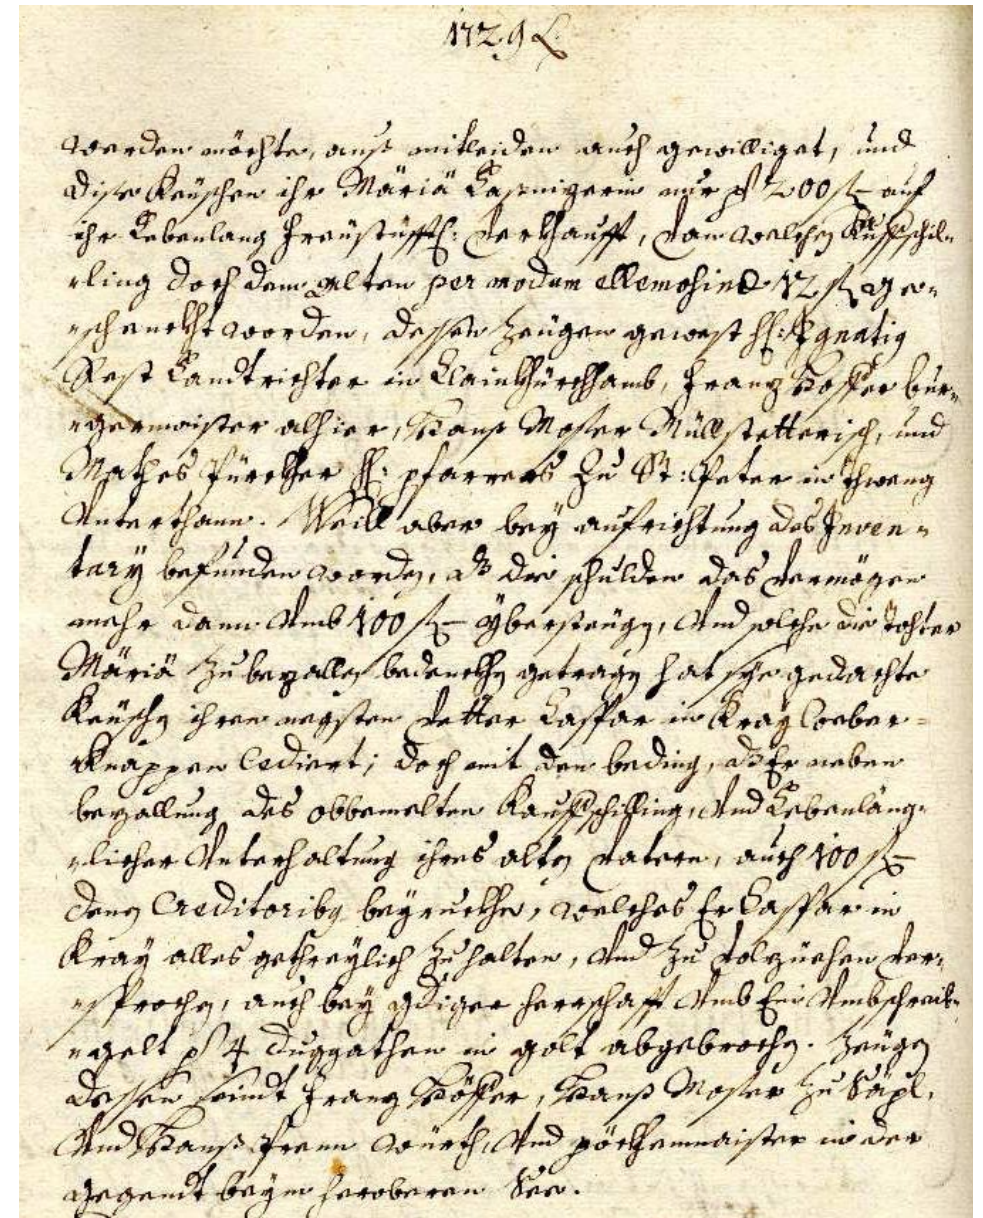 1729
werden möchte, auß mitleiden auch gewilliget, und
dise Keüschen ihr Märiä Laßnigerin nur p 200 f auf
ihr Lebenlang freystüfftl: verkhaufft, von welchen Kauffschil=
=ling doch dem alten per modum ellemosinae 12 f ge=
=schenckht worden, dessen Zeugen gewest H: Ignatig
Rest Landtrichter in Clainkhürchhamb, Franz Hoffer bur=
=germaister alhier, Hanß Moser Müllstetterisch, und
Mathes Pürcher H: pfarrers Zu St: Peter in Thweng
Vnterthann. Weill aber bey aufrichtung des Inven=
tary befunden worden, dz die schulden das vermögen
mehr dann Vmb 100 f ybersteugen, Vnd solche die tochter
Märiä Zu bezallen bedenckhen getragen hat sye gedachte
Keüschen ihren negsten vetter Casspar in Kray Weber=
Knappen Cediert; doch mit den beding, dz Er neben
bezallung des obbemelten Kauffschilling, Vnd Lebenläng=
=licher Vnterhaltung ihres alten vatern, auch 100 f
denen Creditoribus beyruckhe, welches Er Casspar in
Kray alles gethreylich Zu halten, Vnd Zu volzüehen ver=
=sprochen, auch bey gdiger herrschafft Vmb Ein Vmbschreib=
=gelt p 4 Duggathen in golt abgebrochen. Zeugen
dessen seindt Franz Höffer, Hanß Moser Zu
Vnd Hanß Prenn Würth, Vnd pöckhenmaister in der
gegendt beym heroberen See.